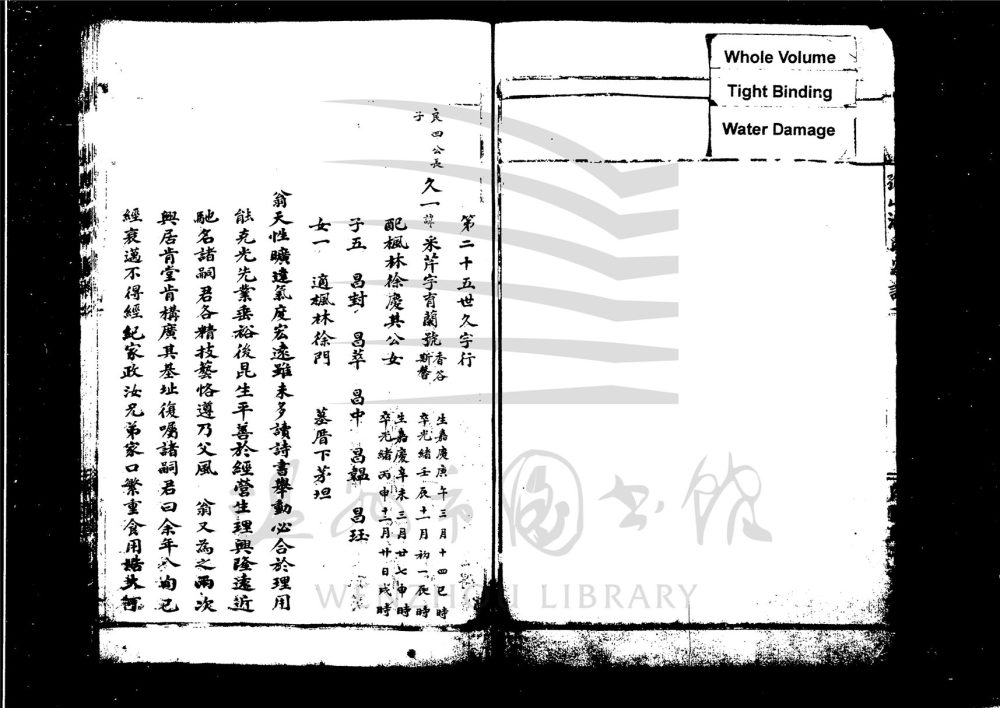 Whole Volume
Tight Binding
Water Damage
第二十五世久字行
良四公長子 久一 諱采芹字有蘭號香谷 斯馨 生嘉慶庚午三月十四巳時 卒光緒壬辰十一月初一辰時
配楓林徐慶其公女 生嘉慶辛未三月廿七申時 卒光緒丙申十二月廿日戌時
子五 昌封 昌萃 昌中 昌韞 昌珏
女一 適楓林徐門 墓厝下茅坦
翁天性曠達氣度宏遠雖未多讀詩書舉動必合於理用
能克光先業垂裕後昆生平善於經營生理興隆遠近
馳名諸嗣君各精技藝恪遵乃父風 翁又為之兩次
興居肯堂肯構廣其基址復囑諸嗣君曰余年八旬已
經衰邁不得經紀家政汝兄弟家口繁重食用浩大
WENZHOU LIBRARY